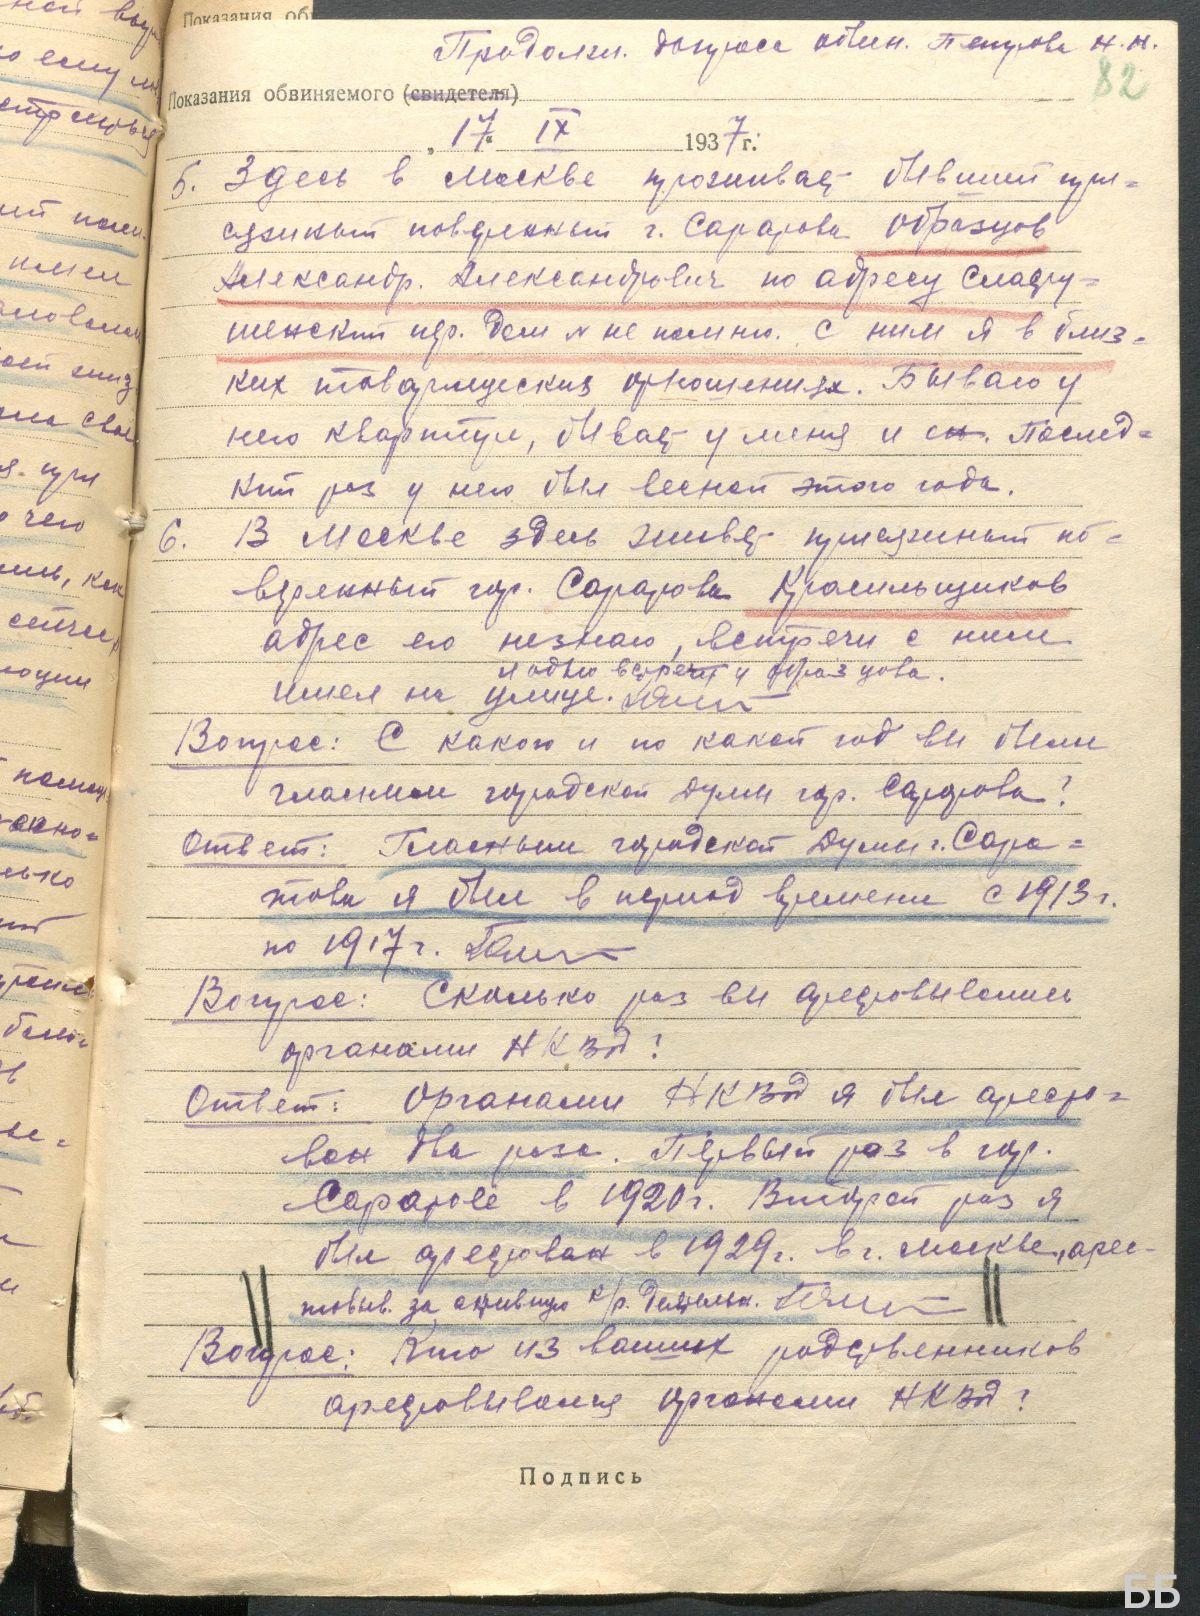 Продолж. допроса обвин. Петрова Н.Н.
82
Показания обвиняемого (свидетеля)
„ 17 " IX 1937 г.
5. Здесь в Москве проживает бывший при=
сяжный поверенный г. Саратова Образцов
Александр. Александрович по адресу Сладку=
шенский пер. Дом № не помню. С ним я в близ=
ких товарищеских отношениях. Бываю у
него квартире, бывает у меня и он. Послед=
ний раз у него был весной этого года.
6. В Москве здесь живет присяжный по=
веренный гор. Саратова Красильщиков
адрес его незнаю, встречи с ним
и одно встреч у Образцова.
имел на улице.
Вопрос: С какого и по какой год вы были
гласным городской думы гор. Саратова?
Ответ: Гласным городской думы г. Сара=
това я был в период времени с 1913 г.
по 1917 г.
Вопрос: Сколько раз вы арестовывались
органами НКВД?
Ответ: Органами НКВД я был аресто=
ван два раза. Первый раз в гор.
Саратове в 1920 г. Второй раз я
был арестован в 1929 г. в г. Москве, арес-
товыв. за активную к/р. деятельн.
Вопрос: Кто из ваших родственников
арестовывался органами НКВД?
Подпись
ББ